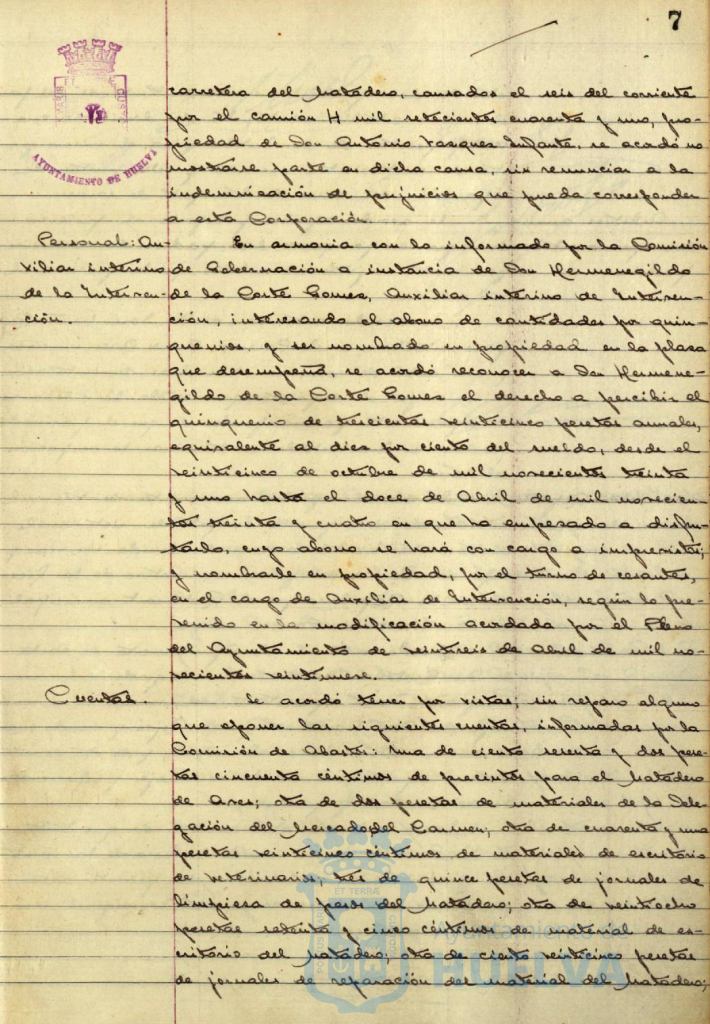 7
AYUNTAMIENTO DE HUELVA
carretera del Matadero, causados el seis del corriente
por el camión H mil setecientos cuarenta y uno, pro-
piedad de Don Antonio Vazquez Infante, se acordó no
mostrarse parte en dicha causa, sin renunciar a la
indemnización de perjuicios que pueda corresponder
a esta Corporación.
Personal: Au-
xiliar interino
de la Interven-
ción.
En armonia con lo informado por la Comisión
de Gobernación a instancia de Don Hermenegildo
de la Corte Gomez, Auxiliar interino de Interven-
ción, interesando el abono de cantidades por quin-
quenios y ser nombrado en propiedad en la plaza
que desempeña, se acordó reconocer a Don Hermene-
gildo de la Corte Gomez el derecho a percibir el
quinquenio de trescientas veinticinco pesetas anuales,
equivalente al diez por ciento del sueldo, desde el
veinticinco de octubre de mil novecientos treinta
y uno hasta el doce de Abril de mil novecien-
tos treinta y cuatro en que ha empezado a disfru-
tarlo, cuyo abono se hará con cargo a imprevistos;
y nombrarle en propiedad, por el turno de cesantes,
en el cargo de Auxiliar de Intervención, según lo pre-
venido en la modificación acordada por el Pleno
del Ayuntamiento de veintiseis de Abril de mil no-
vecientos veintinueve.
Cuentas.
Se acordó tener por vistas, sin reparo alguno
que oponer las siguientes cuentas, informadas por la
Comisión de Abastos: Una de ciento sesenta y dos pese-
tas cincuenta céntimos de precintos para el Matadero
de Aves; otra de dos pesetas de materiales de la Dele-
gación del Mercado del Carmen; otra de cuarenta y una
pesetas veinticinco céntimos de materiales de escritorio
de veterinarios; tres de quince pesetas de jornales de
limpieza de pesos del Matadero; otra de veintiocho
pesetas setenta y cinco céntimos de material de es-
critorio del Matadero; otra de ciento veinticinco pesetas
de jornales de reparación del material del Matadero;
Ayuntamiento de
HUELVA